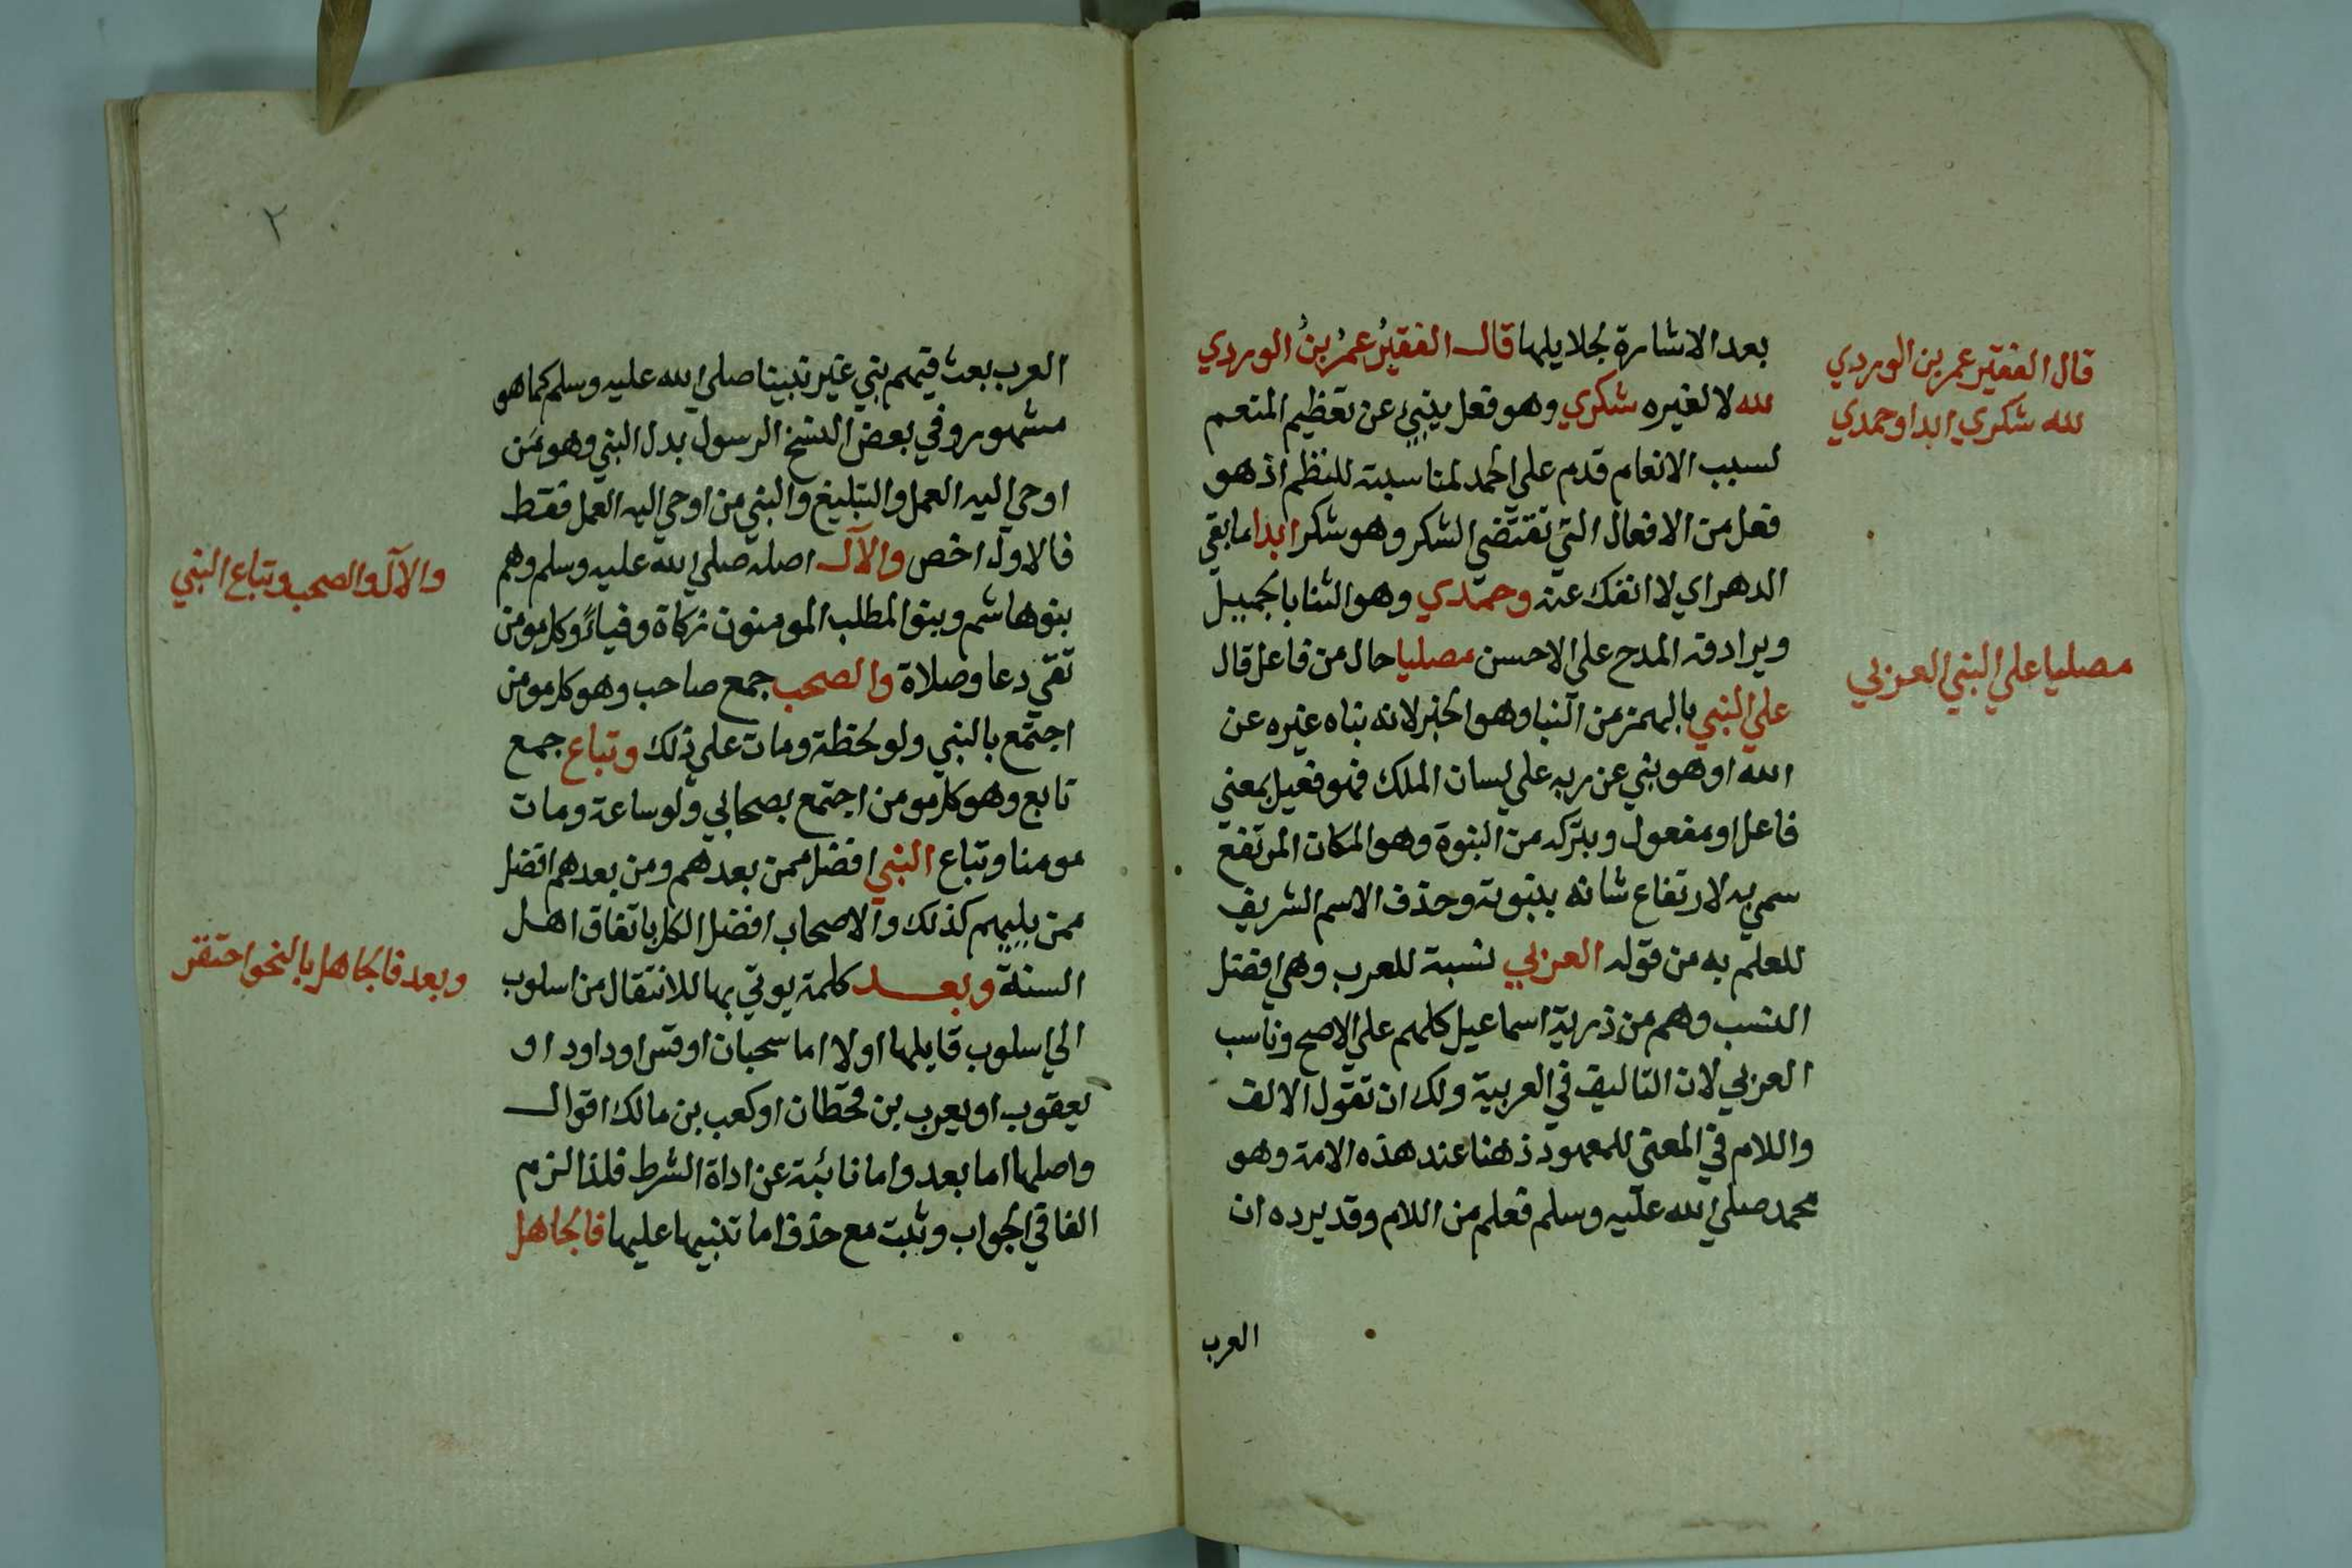 قال الفقير عمر بن الوردي
لله شكري ابدا وحمدي
مصليا علي النبي العربي
بعد الاشارة لجلايلها قال الفقيرُ عمرُ بنُ الوردي
لله لا لغيره شكري وهو فعل ينبئ عن تعظيم المنعم
لسبب الانعام قدم علي الحمد لمناسبته للنظم اذ هو
فعل من الافعال التي تقتضي الشكر وهو شكر ابدا ما بقي
الدهر اي لا انفك عنه وحمدي وهو الثنا بالجميل
ويرادفه المدح علي الاحسن مصليا حال من فاعل قال
علي النبي بالهمز من النبا وهو الخبر لانه نباه غيره عن
الله او هو نبي عن ربه علي لسان الملك فهو فعيل بمعني
فاعل او مفعول وبتركه من النبوة وهو المكان المرتفع
سمي به لارتفاع شانه بنبوته وحذف الاسم الشريف
للعلم به من قوله العربي نسبة للعرب وهي افضل
النسب وهم من ذرية اسماعيل كلهم علي الاصح وناسب
العربي لان التاليف في العربية ولك ان تقول الالف
واللام في المعني للمعهود ذهنا عند هذه الامة وهو
محمد صلي الله عليه وسلم فعلم من اللام وقد يرده ان
العرب
٢
العرب بعث فيهم نبي غير نبينا صلي الله عليه وسلم كما هو
مشهور وفي بعض النسخ الرسول بدل النبي وهو من
اوحي اليه العمل والتبليغ والنبي من اوحي اليه العمل فقط
فالاول اخص والآل اصله صلي الله عليه وسلم وهم
بنو هاشم وبنو المطلب المومنون زكاة وفياءً وكل مومن
تقي دعا وصلاة والصحب جمع صاحب وهو كل مومن
اجتمع بالنبي ولو لحظة ومات علي ذلك وتباع جمع
تابع وهو كل مومن اجتمع بصحابي ولو ساعة ومات
مومنا وتباع النبي افضل ممن بعدهم ومن بعدهم افضل
ممن يليهم كذلك والاصحاب افضل الكل باتفاق اهل
السنة وبعد كلمة يوتي بها للانتقال من اسلوب
الي اسلوب قايلها اولا اما سحبان او قس او داود او
يعقوب او يعرب بن قحطان او كعب بن مالك اقوال
واصلها اما بعد واما نائبة عن اداة الشرط فلذا لزم
الفا في الجواب وثبت مع حذف اما تنبيها عليها فالجاهل
والآل والصحب وتباع النبي
وبعد فالجاهل بالنحو احتقر